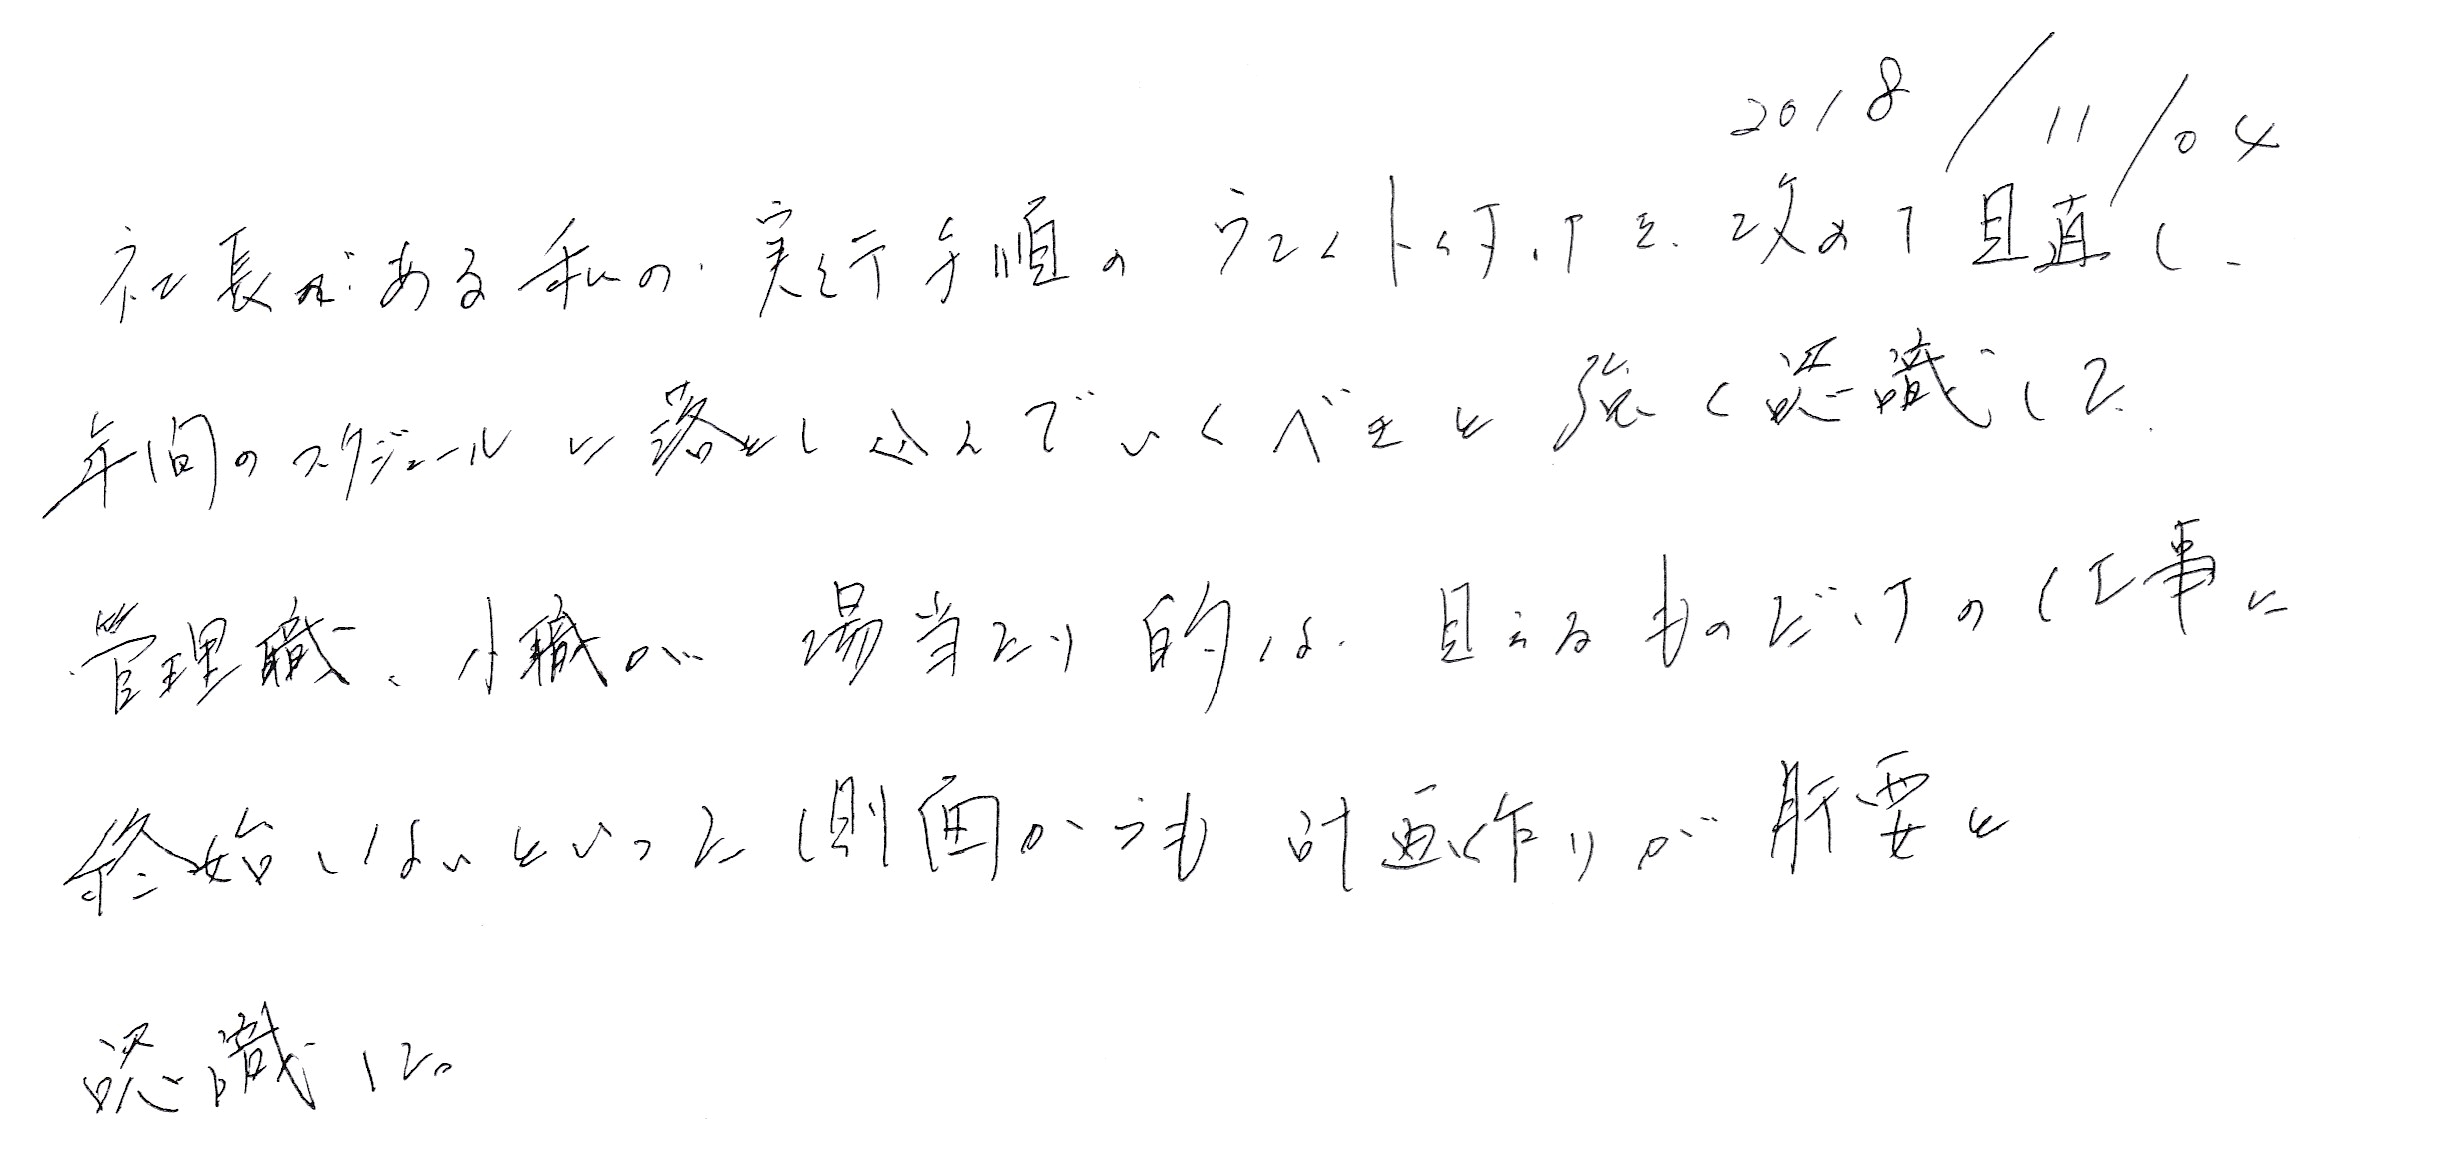 2018/11/04
社長がある私の実行手順のウエイト付けを、改めて見直し、
年間のスケジュールに落とし込んでいくべきと強く認識した。
管理職、小職が場当たり的な見えるものだけの仕事に
終始しないといった側面からも計画作りが肝要と
認識した。